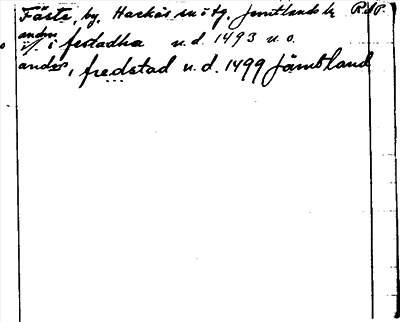 Fäste, by, Hackås sn i tg. Jämtlands l.
andrs i festadha u.d. 1493 u.o.
andrs, i fredstad u.d. 1499 Jämtland